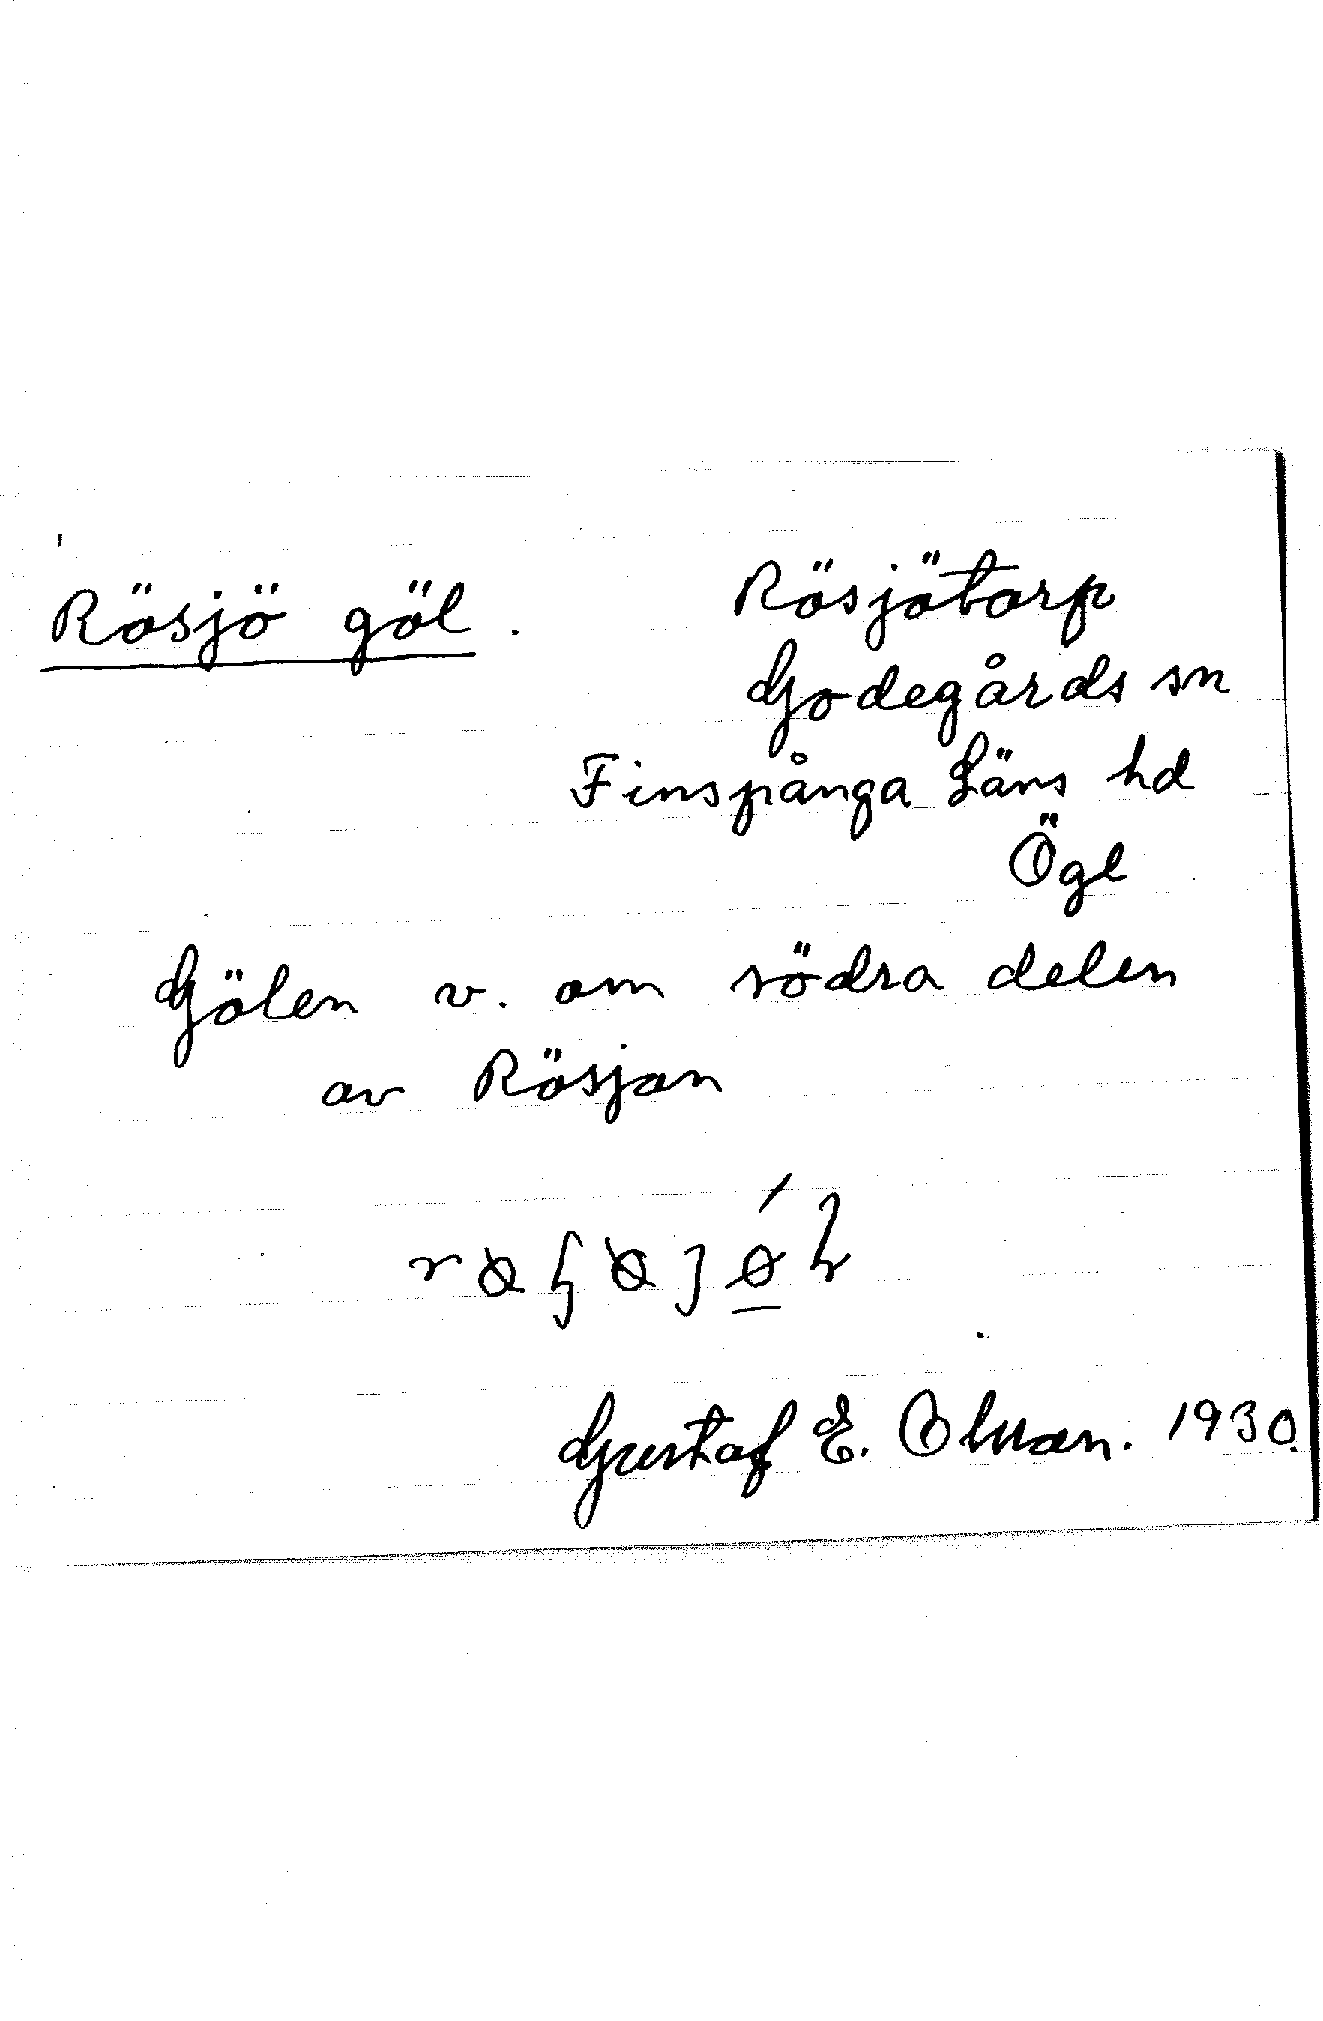 Rösjö göl.
Rösjötorp
Godegårds sn
Finspånga Läns hd
Ögl
Gölen v. om södra delen
av Rösjon
Gustaf E. Olsson. 1930.